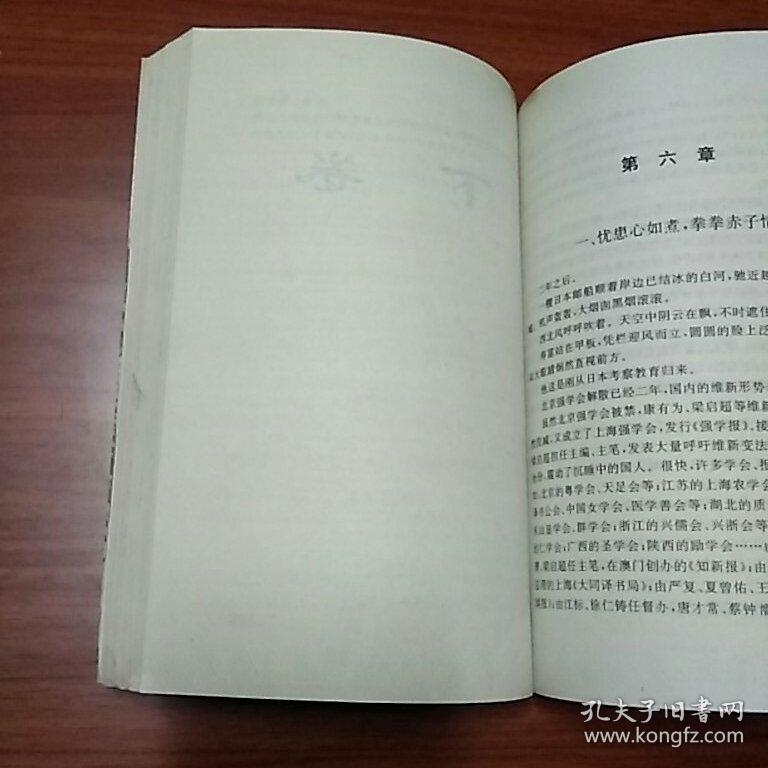 下卷
第六章
一、忧患心如煮,拳拳赤子情
二年之后。
一艘日本邮船顺着岸边已结冰的白河,驰近
机声轰轰,大烟囱黑烟滚滚。
西北风呼呼吹着。天空中阴云在飘,不时遮住
寿富站在甲板,凭栏迎风而立,圆圆的脸上
大眼睛炯然直视前方。
他这是刚从日本考察教育归来。
北京强学会解散已经二年,国内的维新形势
虽然北京强学会被禁,康有为、梁启超等维新
又成立了上海强学会,发行《强学报》,接
梁启超担任主编、主笔,发表大量呼吁维新变法
震动了沉睡中的国人。很快,许多学会、报
如,北京的粤学会、天足会等;江苏的上海农学会
公会、中国女学会、医学善会等;湖北的质
学会、群学会;浙江的兴儒会、兴浙会等
仁学会;广西的圣学会;陕西的励学会……
梁启超任主笔,在澳门创办的《知新报》;由
的上海《大同译书局》;由严复、夏曾佑、王
由江标、徐仁铸任督办,唐才常、蔡钟
孔夫子旧书网
www.kongfz.com